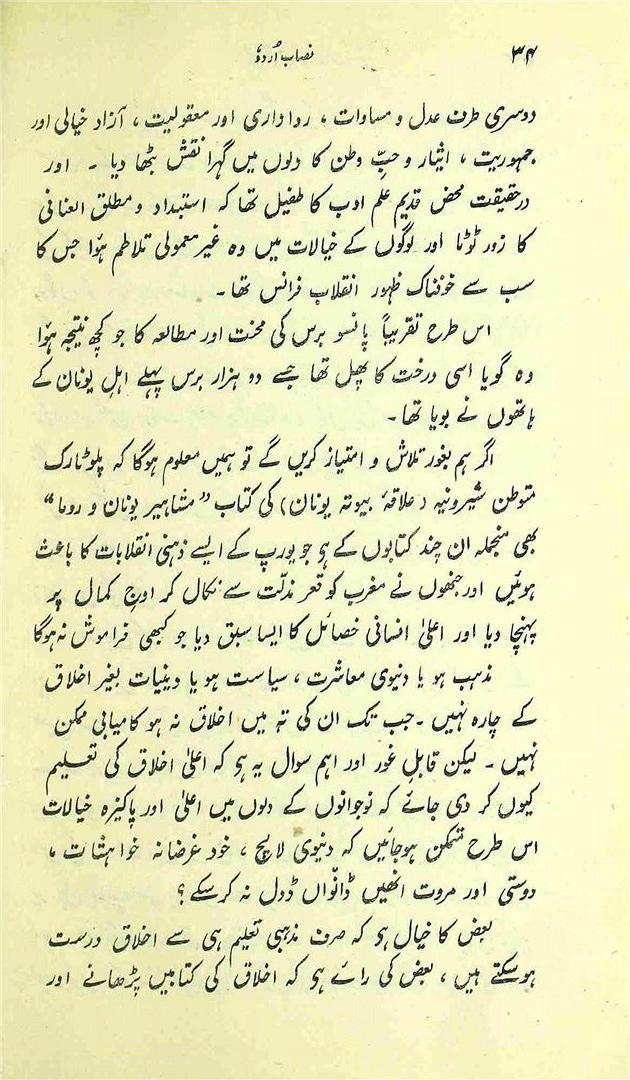 ۳۴
نصاب اُردو
دوسری طرف عدل و مساوات ، رواداری اور معقولیت ، آزاد خیالی اور
جمہوریت ، ایثار و حبِّ وطن کا دلوں میں گہرا نقش بٹھا دیا ۔ اور
درحقیقت محض قدیم علم ادب کا طفیل تھا کہ استبداد و مطلق العنانی
کا زور ٹوٹا اور لوگوں کے خیالات میں وہ غیرمعمولی تلاطم ہؤا جس کا
سب سے خوفناک ظہور انقلابِ فرانس تھا ۔
اس طرح تقریباً پانسو برس کی محنت اور مطالعہ کا جو کچھ نتیجہ ہؤا
وہ گویا اسی درخت کا پھل تھا جسے دو ہزار برس پہلے اہلِ یونان کے
ہاتھوں نے بویا تھا ۔
اگر ہم بغور تلاش و امتیاز کریں گے تو ہمیں معلوم ہوگا کہ پلوٹارک
متوطن شیرونیہ (علاقۂ بیوتہ یونان) کی کتاب “مشاہیر یونان و روما”
بھی منجملہ ان چند کتابوں کے ہی جو یورپ کے ایسے ذہنی انقلابات کا باعث
ہوئیں اور جنھوں نے مغرب کو قعر مذلّت سے نکال کر اوجِ کمال پر
پہنچا دیا اور اعلیٰ انسانی خصائل کا ایسا سبق دیا جو کبھی فراموش نہ ہوگا
مذہب ہو یا دنیوی معاشرت ، سیاست ہو یا دینیات بغیر اخلاق
کے چارہ نہیں ۔ جب تک ان کی تہ میں اخلاق نہ ہو کامیابی ممکن
نہیں ۔ لیکن قابلِ غور اور اہم سوال یہ ہی کہ اعلیٰ اخلاق کی تعلیم
کیوں کر دی جائے کہ نوجوانوں کے دلوں میں اعلیٰ اور پاکیزہ خیالات
اس طرح متمکن ہوجائیں کہ دنیوی لالچ ، خود غرضانہ خواہشات ،
دوستی اور مروت انھیں ڈانواں ڈول نہ کرسکے ؟
بعض کا خیال ہی کہ صرف مذہبی تعلیم ہی سے اخلاق درست
ہوسکتے ہیں ، بعض کی رائے ہی کہ اخلاق کی کتابیں پڑھانے اور